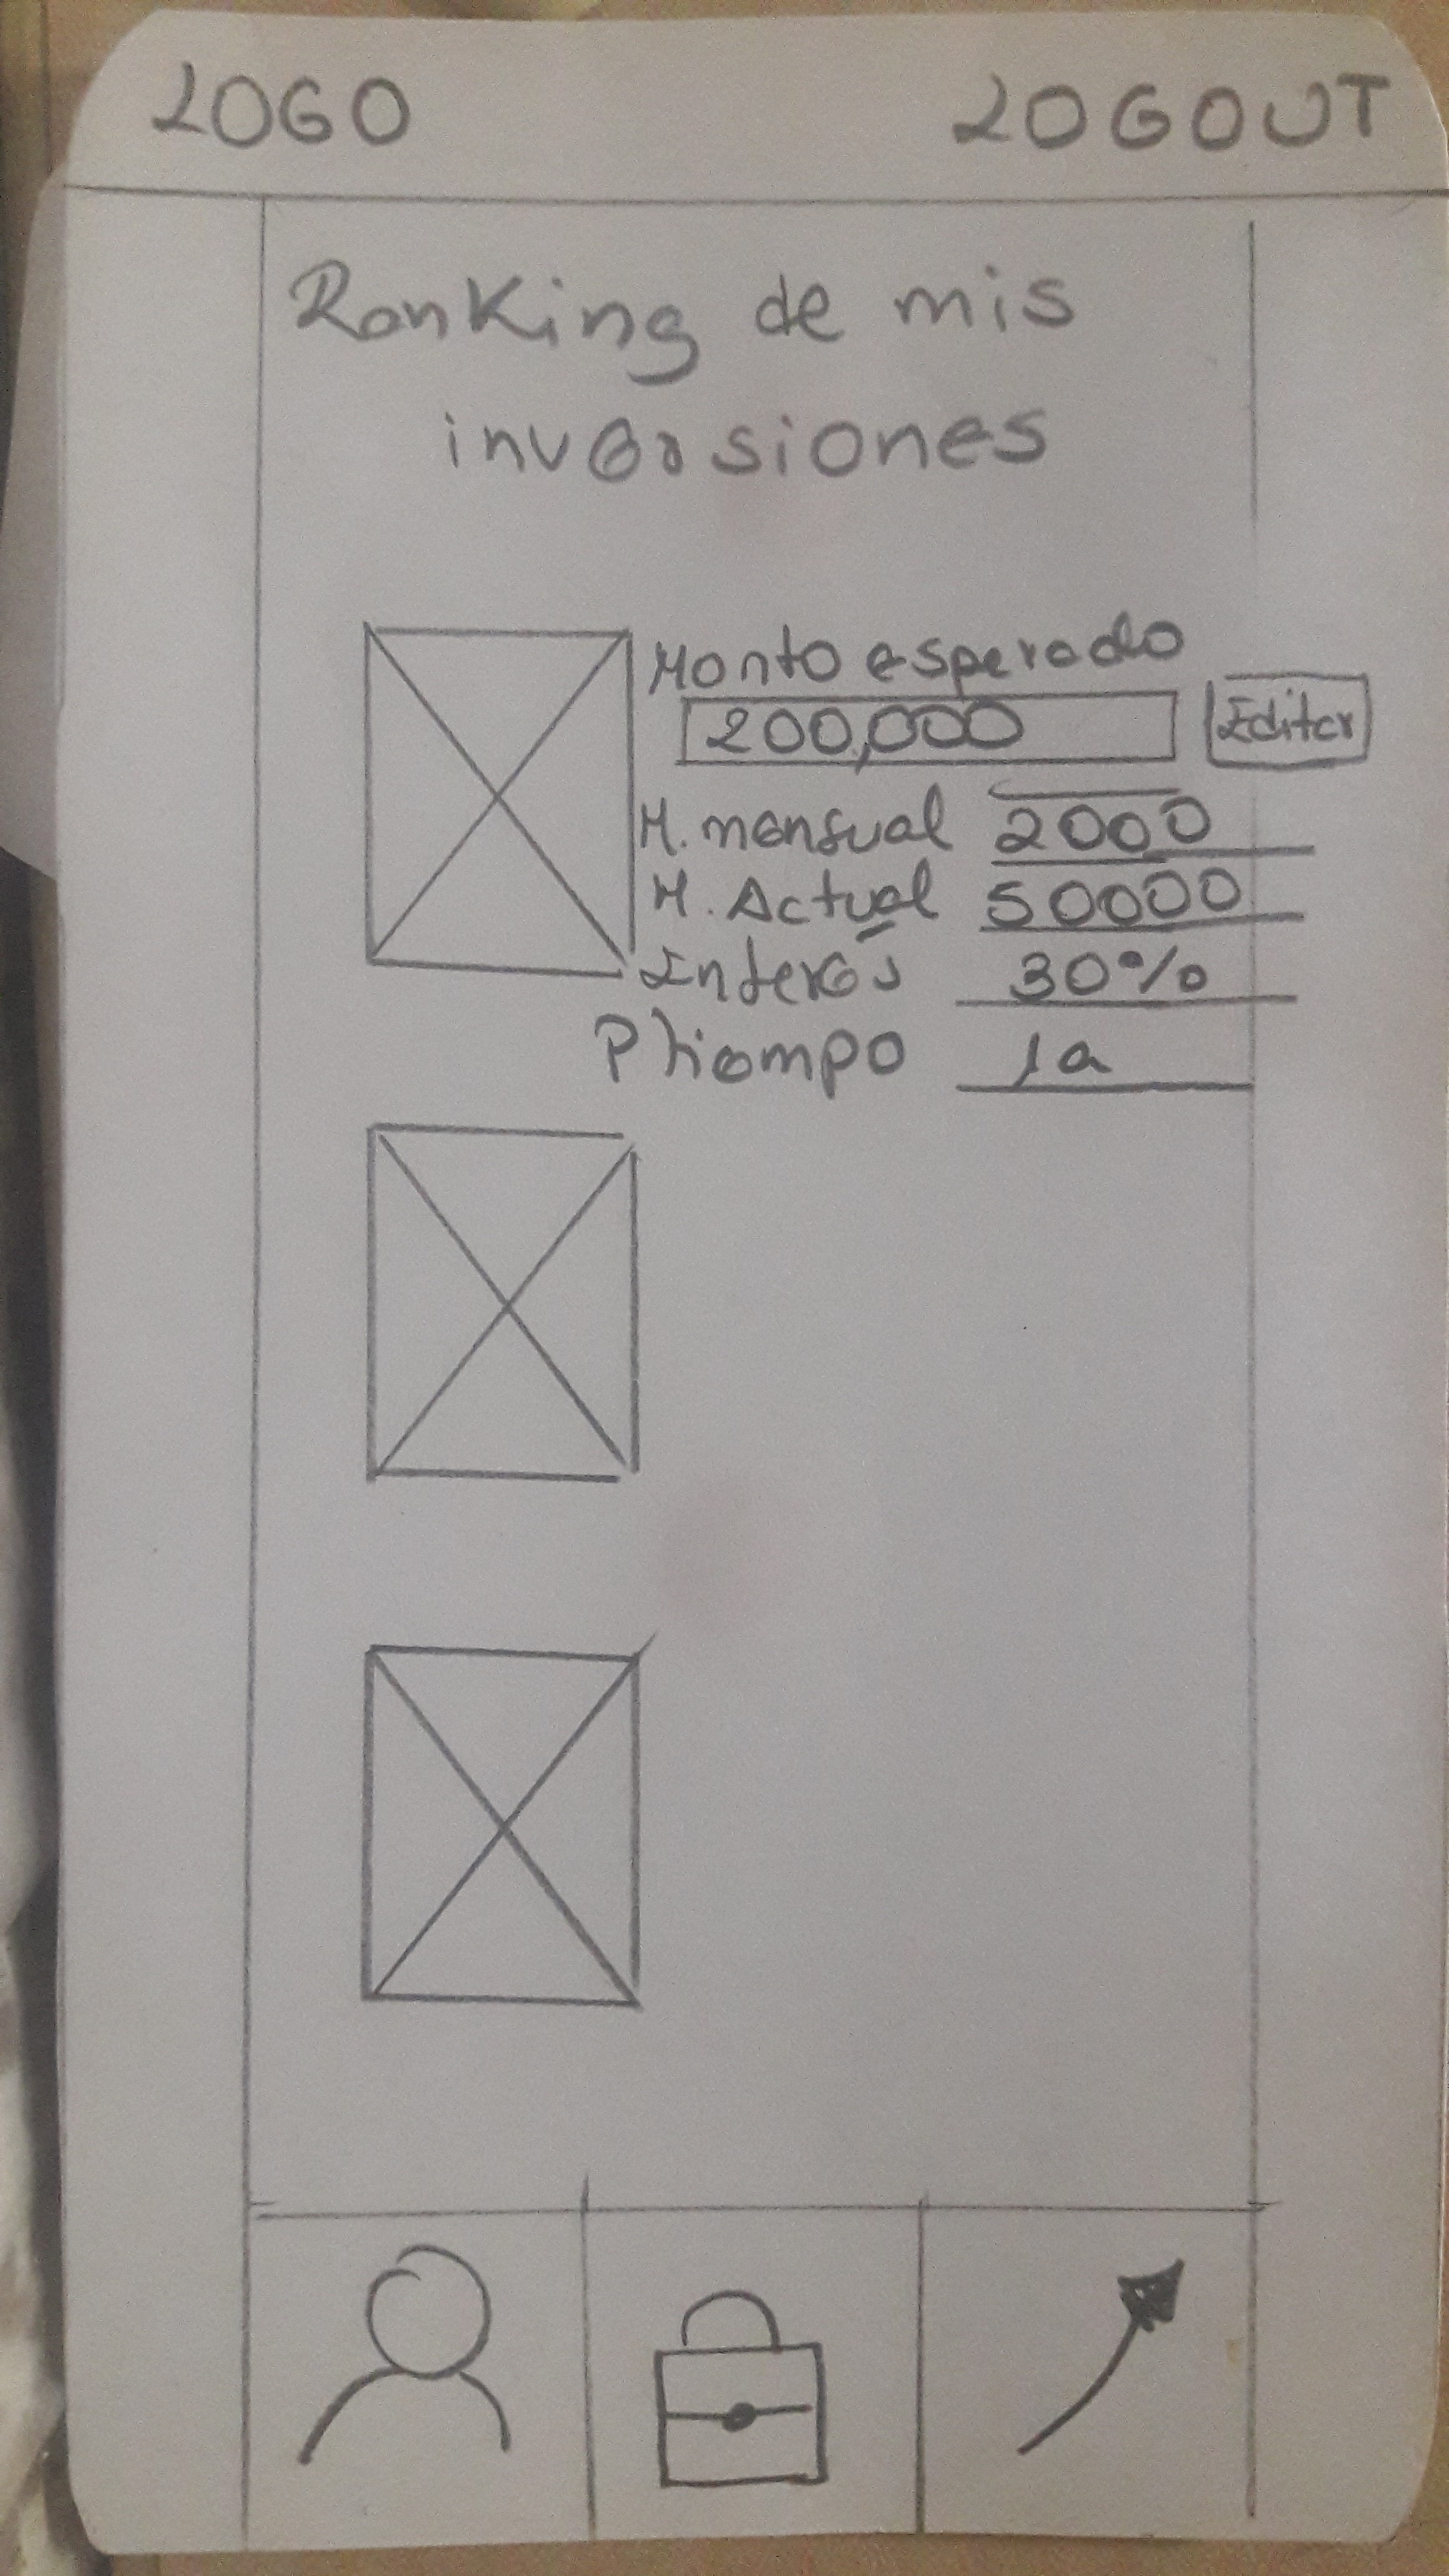 LOGO LOGOUT
Ranking de mis
inversiones
Monto esperado
200,000 Editar
M. mensual 2000
M. Actual 50000
Interés 30%
P tiempo 1a